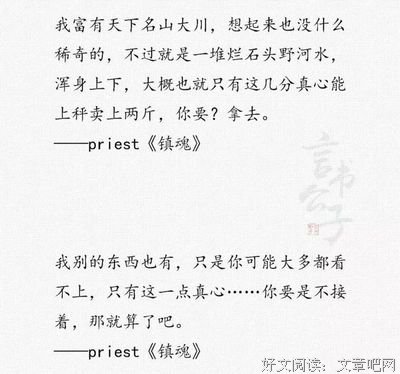 我富有天下名山大川，想起来也没什么
稀奇的，不过就是一堆烂石头野河水，
浑身上下，大概也就只有这几分真心能
上秤卖上两斤，你要？拿去。
——priest《镇魂》
言书公子
我别的东西也有，只是你可能大多都看
不上，只有这一点真心……你要是不接
着，那就算了吧。
——priest《镇魂》
好文阅读：文章吧网